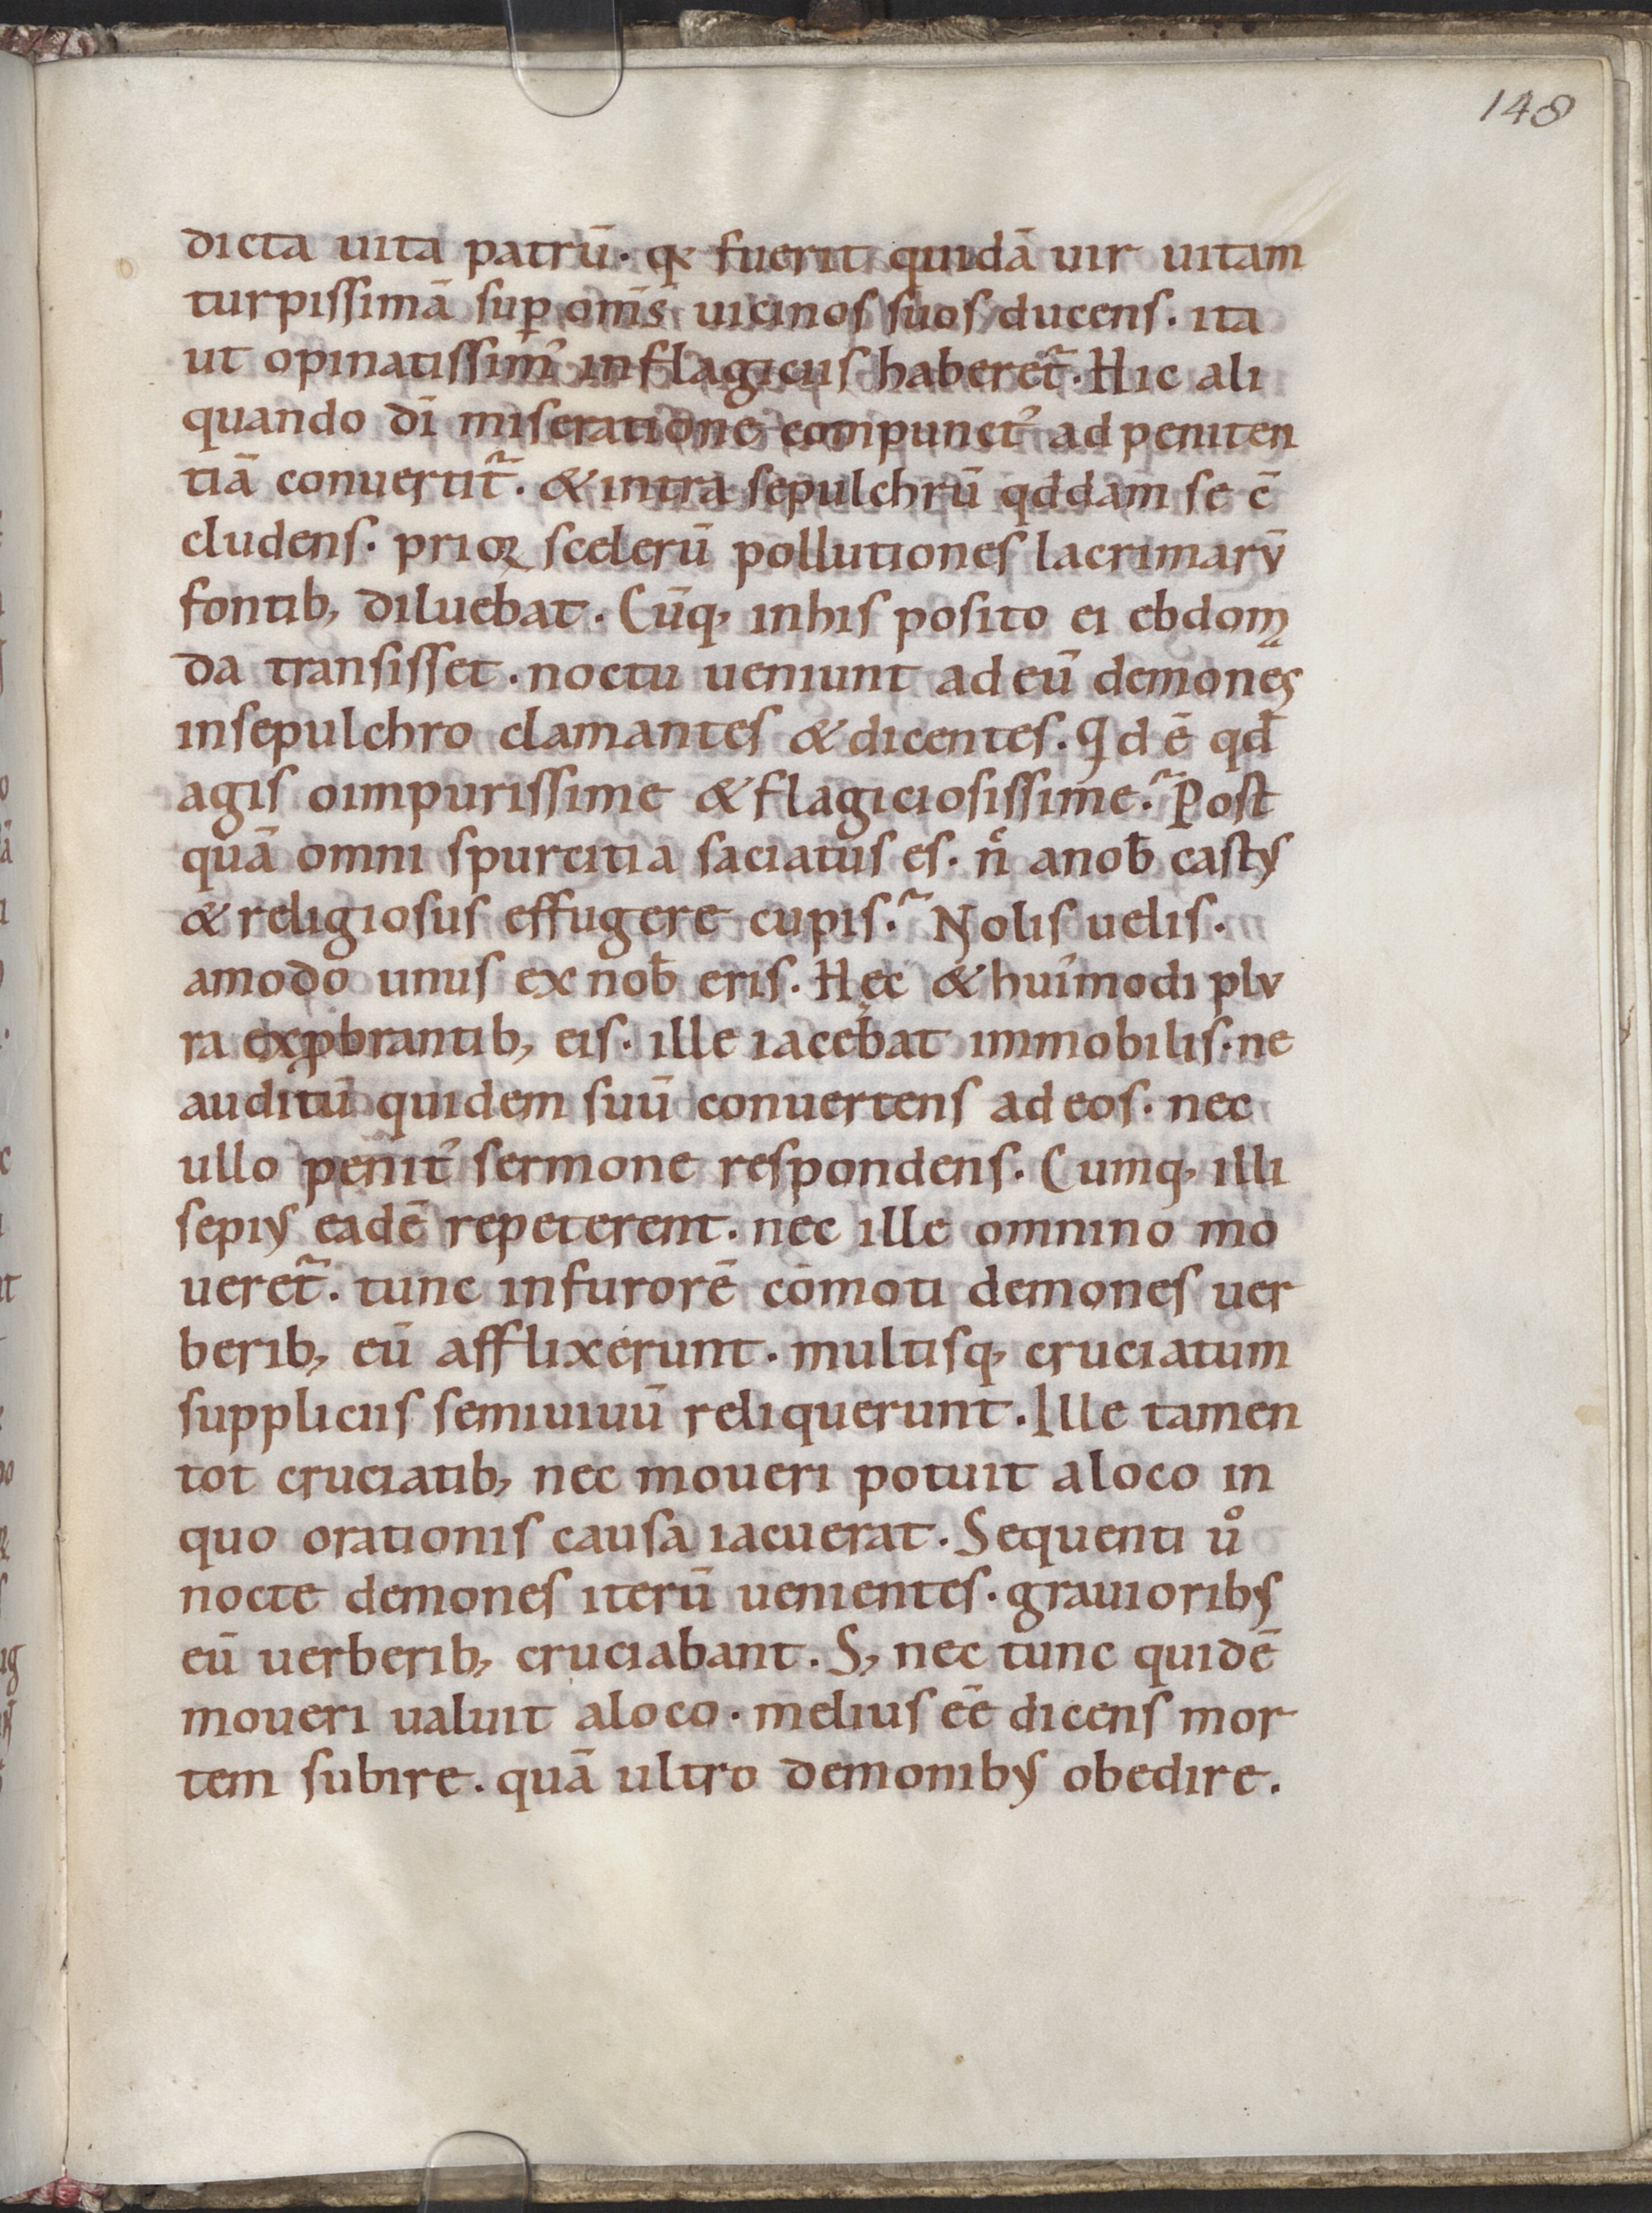 148
dicta uita patrū. qꝫ fuerit quidā uir uitam
turpissimā suꝑ om̄s uicinos suos ducens. ita
ut opinatissimꝰ in flagiciis haberet᷑. Hic ali
quando dī miseratione compunctꝰ ad peniten
tiā conuertit᷑. & intra sepulchrū qđdam se c̄
cludens. prioꝝ scelerū pollutiones lacrimarū
fontib; diluebat. Cūq; in his posito ei ebdoma
da transisset. noctu ueniunt ad eū demones
in sepulchro clamantes & dicentes. Qd ē qđ
agis o impurissime & flagiciosissime? Post
quā omni spurcitia saciatus es. nͨ a noƀ castus
& religiosus effugere cupis? Nolis uelis.
amodo unus ex noƀ eris. Hęc & huiꝰmodi plu
ra exꝓbrantib; eis. ille iacebat immobilis. ne
auditū quidem suū conuertens ad eos. nec
ullo penitꝰ sermone respondens. Cumq; illi
sepius eadē repeterent. nec ille omnino mo
ueret᷑. tunc in furorē cōmoti demones uer
berib; eū afflixerunt. multisq; cruciatum
suppliciis semiuiuū reliquerunt. Ille tamen
tot cruciatib; nec moueri potuit a loco in
quo orationis causa iacuerat. Sequenti uͦ
nocte demones iterū uenientes. grauioribus
eū uerberib; cruciabant. S; nec tunc quidē
moueri ualuit a loco. melius eē dicens mor
tem subire. quā ultro demonibus obedire.